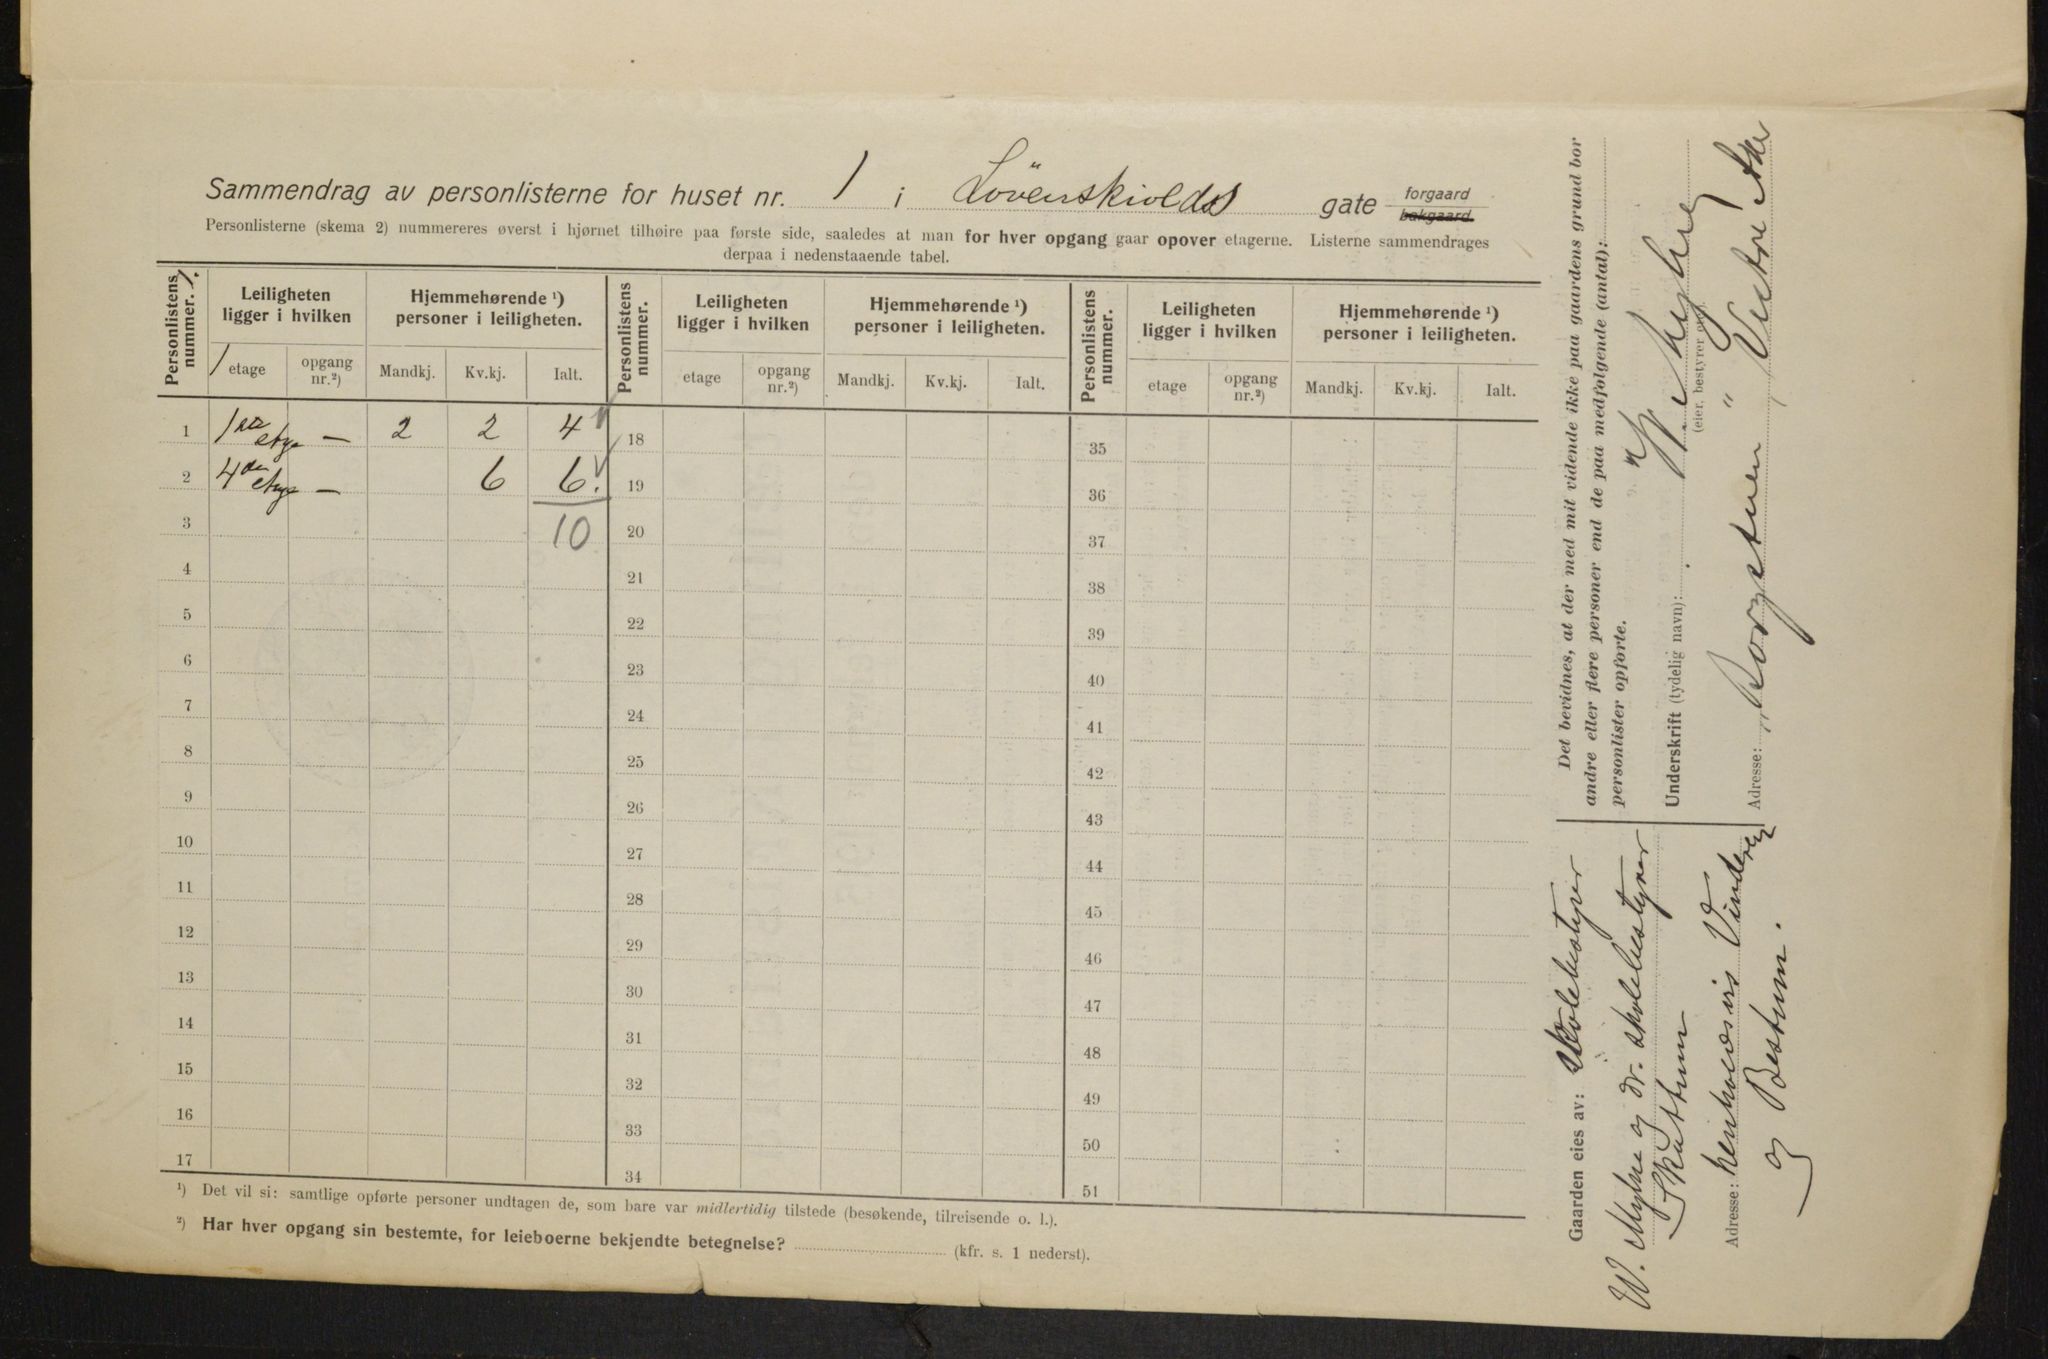 Sammendrag av personlisterne for huset nr. 1 i Lövenskiolds gate forgaard bakgaard
Personlisterne (skema 2) nummereres øverst i hjørnet tilhøire paa første side, saaledes at man for hver opgang gaar opover etagerne. Listerne sammendrages
derpaa i nedenstaaende tabel.
Personlistens nummer. Leiligheten ligger i hvilken Hjemmehørende ¹) personer i leiligheten. Personlistens nummer. Leiligheten ligger i hvilken Hjemmehørende ¹) personer i leiligheten. Personlistens nummer. Leiligheten ligger i hvilken Hjemmehørende ¹) personer i leiligheten.
etage opgang nr.²) Mandkj. Kv.kj. Ialt. etage opgang nr.²) Mandkj. Kv.kj. Ialt. etage opgang nr.²) Mandkj. Kv.kj. Ialt.
1 1ste etge — 2 2 4 18 35
2 4de etge — 6 6. 19 36
3 10 20 37
4 21 38
5 22 39
6 23 40
7 24 41
8 25 42
9 26 43
10 27 44
11 28 45
12 29 46
13 30 47
14 31 48
15 32 49
16 33 50
17 34 51
¹) Det vil si: samtlige opførte personer undtagen de, som bare var midlertidig tilstede (besøkende, tilreisende o. l.).
²) Har hver opgang sin bestemte, for leieboerne bekjendte betegnelse? (kfr. s. 1 nederst).
Det bevidnes, at der med mit vidende ikke paa gaardens grund bor
andre eller flere personer end de paa medfølgende (antal):
personlister opførte.
Underskrift (tydelig navn):
(eier, bestyrer
Adresse: Vestre Aker
Gaarden eies av: skolebestyrer
W. Myhre og dr. skolebestyrer
Skattum
Adresse: henholdsvis Vinderen
og Bestum.